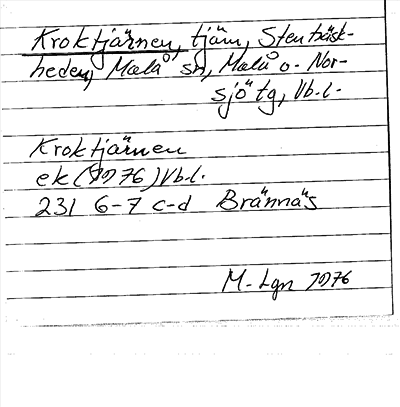 Kroktjärnen, tjärn, Stenträsk-
heden, Malå sn, Malå o. Nor-
sjö tg, Vb.l.
Kroktjärnen
ek (1976) Vb.l.
231 6-7 c-d Brännäs
M. Lgn 1976